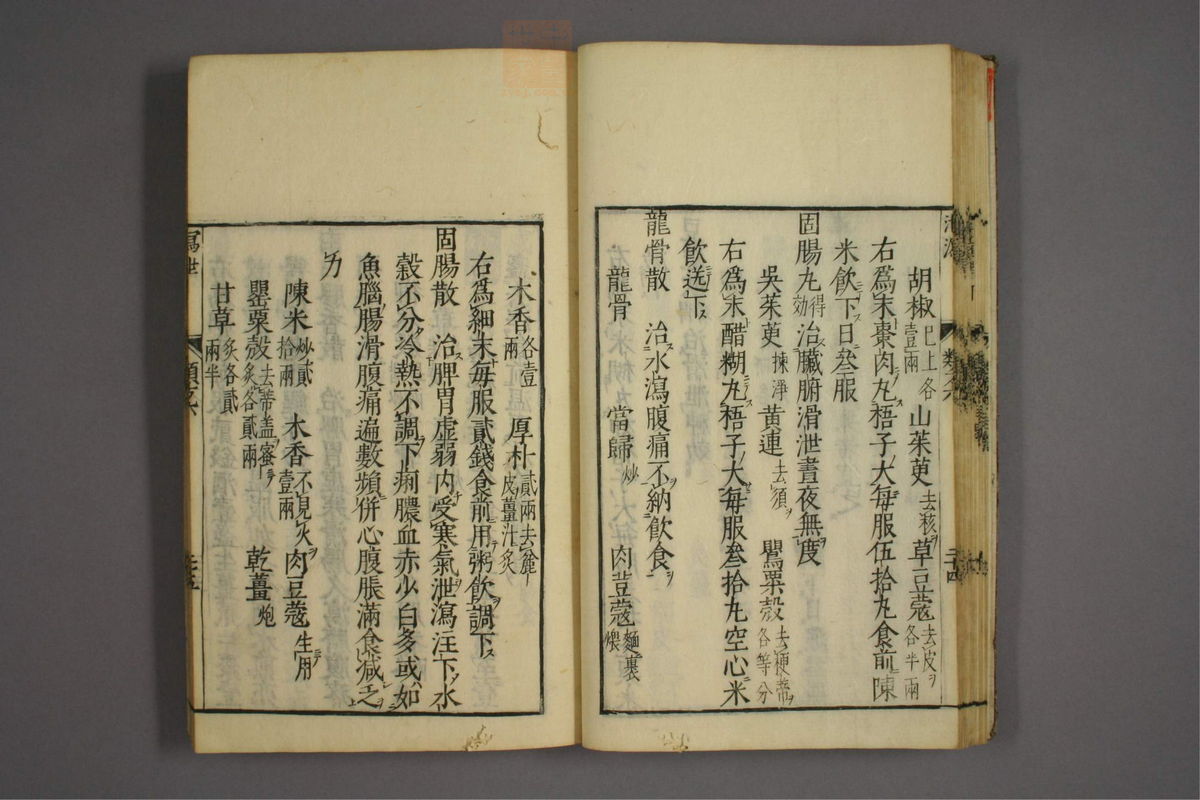 胡椒已上各壹兩 山茱萸去核ヲ 草豆蔻去皮ヲ各半兩
右爲末棗肉丸梧子大每服伍拾丸食前陳
米飲下日叁服
固腸丸得効 治臟腑滑泄晝夜無度
吳茱萸揀淨 黃連去須ヲ 罌粟殼去梗蒂ヲ各等分
右爲末醋糊丸梧子大每服叁拾丸空心米
飲送下
龍骨散 治水瀉腹痛不納飲食
龍骨 當歸炒 肉荳蔻麵裹煨
木香各壹兩 厚朴貳兩去麄皮薑汁炙
右爲細末每服貳錢食前用粥飲調下
固腸散 治脾胃虛弱內受寒氣泄瀉注下水
穀不分冷熱不調下痢膿血赤少白多或如
魚腦腸滑腹痛遍數頻併心腹脹滿食減乏
力
陳米炒貳拾兩 木香不見火ヲ壹兩 肉豆蔻生用
罌粟殼去蒂盖蜜炙各貳兩 乾薑炮
甘草炙各貳兩半